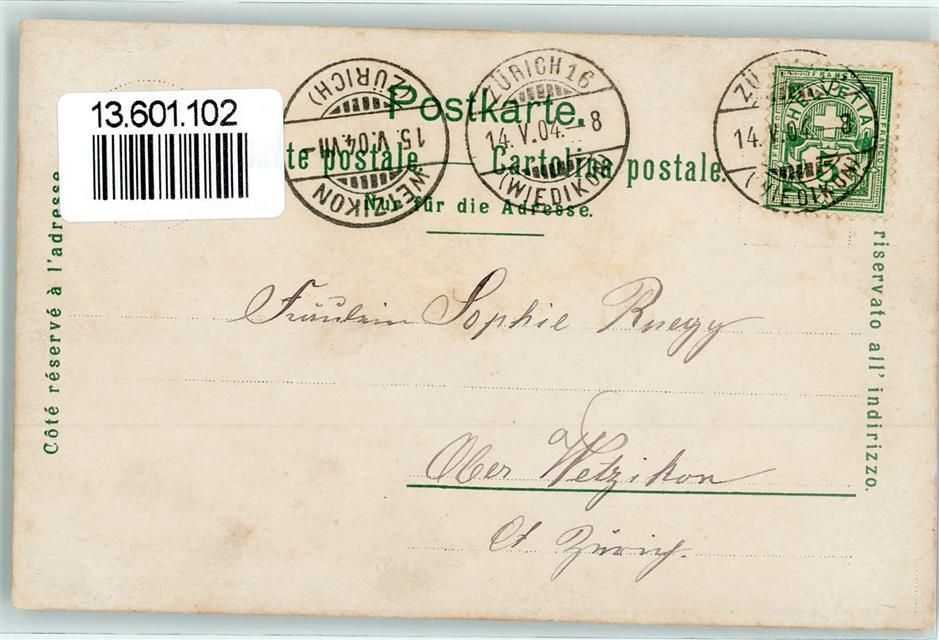 13.601.102
WETZIKON (ZÜRICH)
15.V.04.VII
ZÜRICH 16 (WIEDIKON)
14.V.04.-8
ZÜ (WIEDIKON)
14.V.04 8
FRANCO
HELVETIA
5
Postkarte.
te postale — Cartolina postale.
Nur für die Adresse.
Côté réservé à l'adresse.
riservato all' indirizzo.
Fräulein Sophie Ruegg
Ober Wetzikon
Ct Zürich.